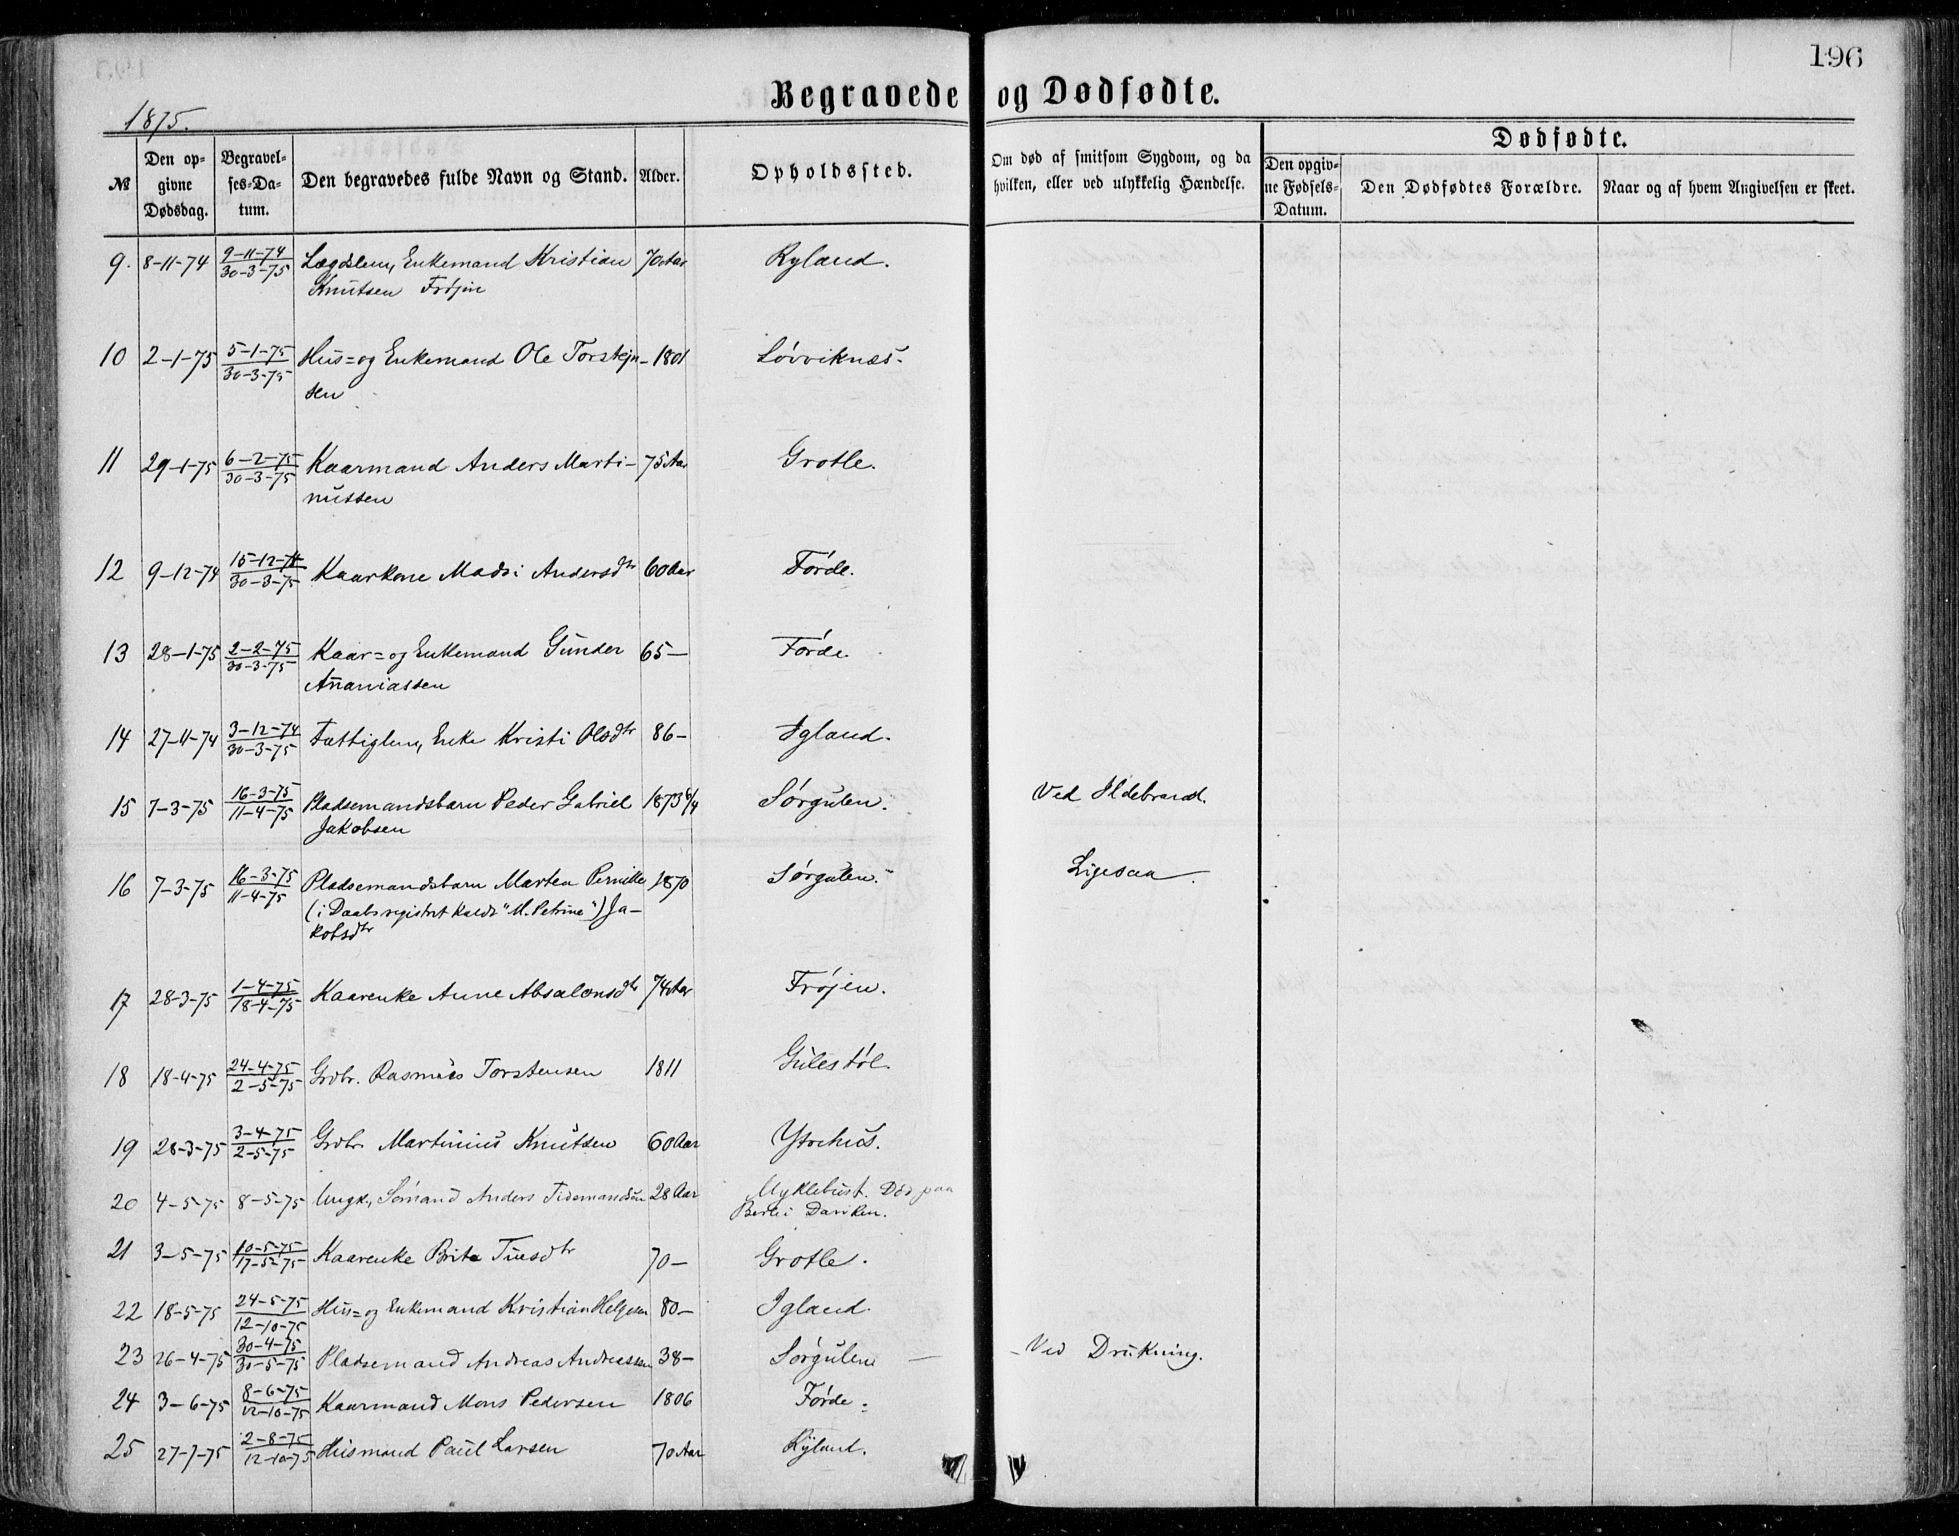 196
Begravede og Dødfødte.
1875.
№ Den opgivne Dødsdag. Begravelses-Datum. Den begravedes fulde Navn og Stand. Alder. Opholdssted. Om død af smitsom Sygdom, og da hvilken, eller ved ulykkelig Hændelse. Dødfødte. Den opgivne Fødsels-Datum. Den Dødfødtes Forældre. Naar og af hvem Angivelsen er skeet.
9. 8-11-74 9-11-74 / 30-3-75 Lægdslem, Enkemand Kristian 70 Aar Ryland.
Knutsen Frøjen
10 2-1-75 5-1-75 / 30-3-75 Hus= og Enkemand Ole Torstejn- 1801 Løvviknæs.
sen
11 29-1-75 6-2-75 / 30-3-75 Kaarmand Anders Marti- 75 Aar Grotle.
nussen
12 9-12-74 15-12-74 / 30-3-75 Kaarkone Madsi Andersdtr 60 Aar Førde.
13 28-1-75 2-2-75 / 30-3-75 Kaar= og Enkemand Gunder 65- Førde.
Ananiassen
14 27-11-74 3-12-74 / 30-3-75 Fattiglem, Enke Kristi Olsdtr 86- Igland.
15 7-3-75 16-3-75 / 11-4-75 Pladsemandsbarn Peder Gabriel 1873 6/4 Sørgulen. Ved Ildebrand.
Jakobsen
16 7-3-75 16-3-75 / 11-4-75 Pladsemandsbarn Marten Pernille 1870 Sørgulen. Ligesaa.
(i Daabsregistret kaldt "M. Petrine") Ja-
kobsdtr
17 28-3-75 1-4-75 / 18-4-75 Kaarenke Anne Absalonsdtr 74 Aar Frøjen.
18 18-4-75 24-4-75 / 2-5-75 Grdbr. Rasmus Torstensen 1811 Gulestøl.
19 28-3-75 3-4-75 / 2-5-75 Grdbr Martinus Knutsen 60 Aar Ytrehus.
20 4-5-75 8-5-75 Ungk, Sømand Anders Tidemandsen 28 Aar Myklebust. Død paa
Berlei Daviken.
21 3-5-75 10-5-75 / 17-5-75 Kaarenke Brite Tuesdtr 70- Grotle.
22 18-5-75 24-5-75 / 12-10-75 Hus= og Enkemand Kristian Helgesen 80- Igland.
23 26-4-75 30-4-75 / 30-5-75 Pladsemand Andreas Andreassen 38- Sørgulen - Ved Drukning.
24 3-6-75 8-6-75 / 12-10-75 Kaarmand Mons Pedersen 1806 Førde.
25 27-7-75 2-8-75 / 12-10-75 Husmand Paul Larsen 70 Aar Ryland.